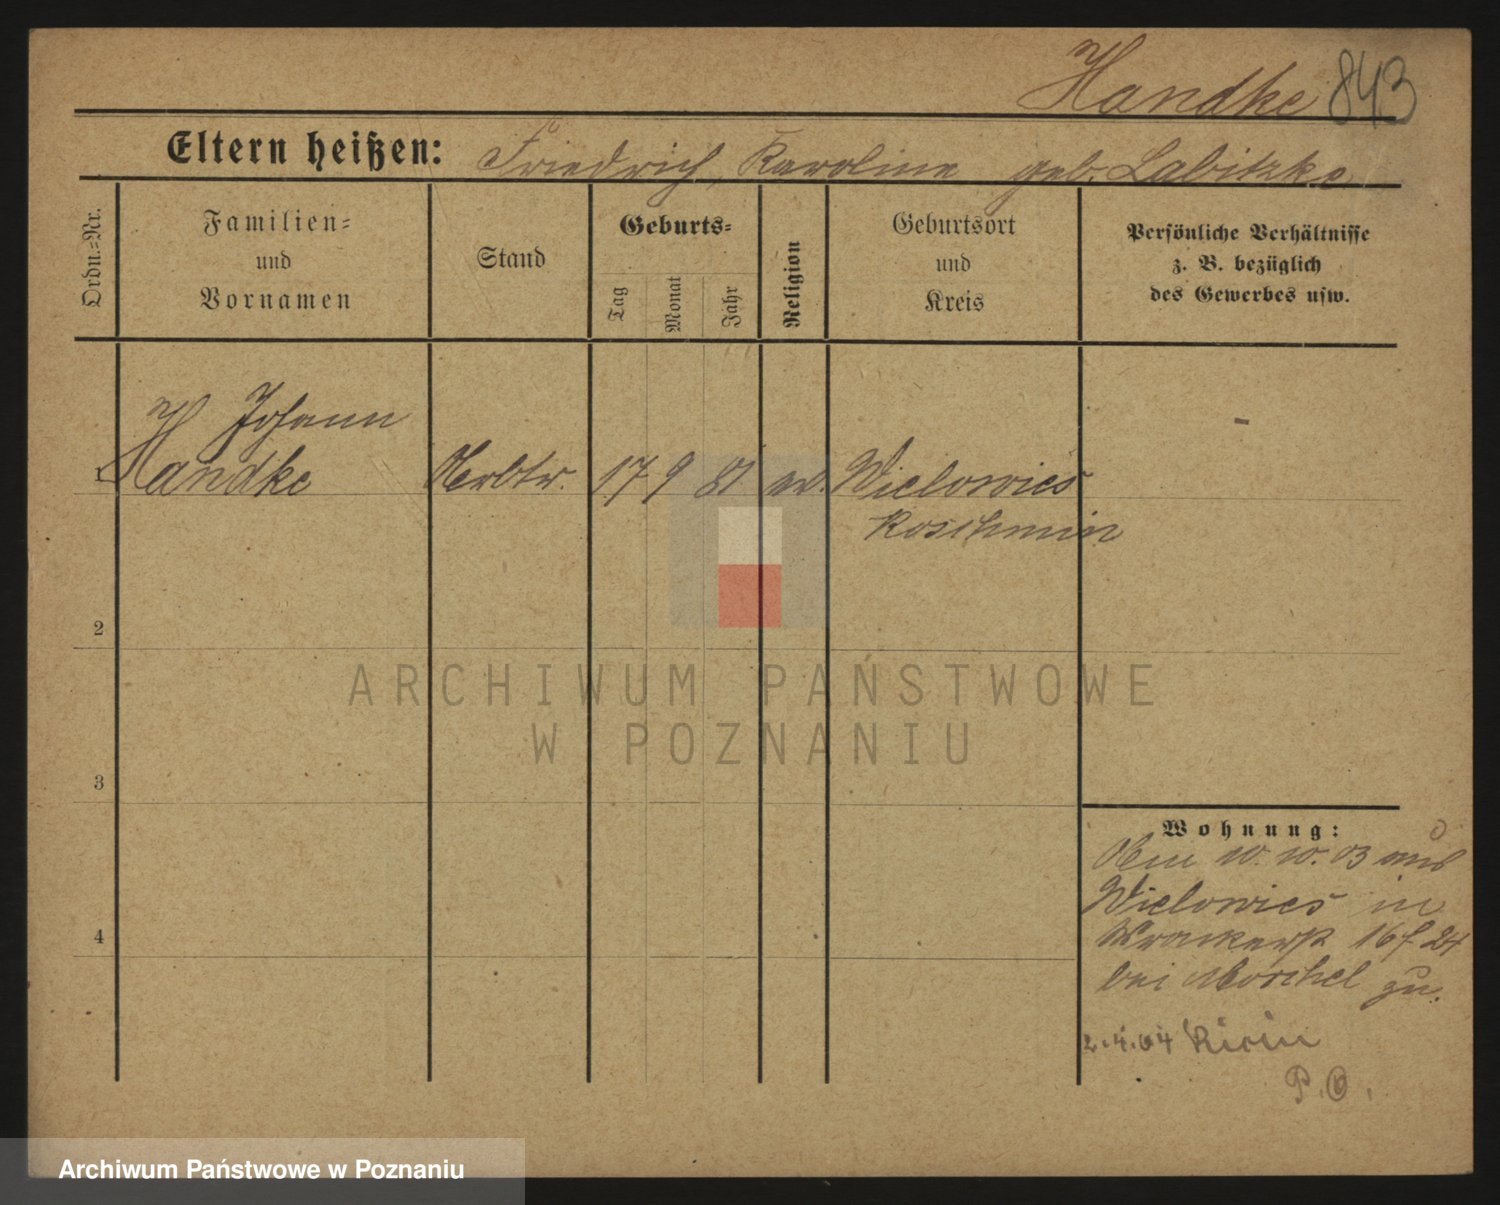 Handke 843
Eltern heißen: Friedrich, Karoline geb. Labitzke
Ordn.=Nr.
Familien=
und
Vornamen
Stand
Geburts=
Tag
Monat
Jahr
Religion
Geburtsort
und
Kreis
Persönliche Verhältnisse
z. B. bezüglich
des Gewerbes usw.
Johann
1 Handke 17 9 81 ev. Wielowies -
Koschmin
2
ARCHIWUM PAŃSTWOWE
W POZNANIU
3
4
Wohnung:
10. 10. 03 aus
Wielowies in
16 24
bei zu.
2.4.04
P.O.
Archiwum Państwowe w Poznaniu